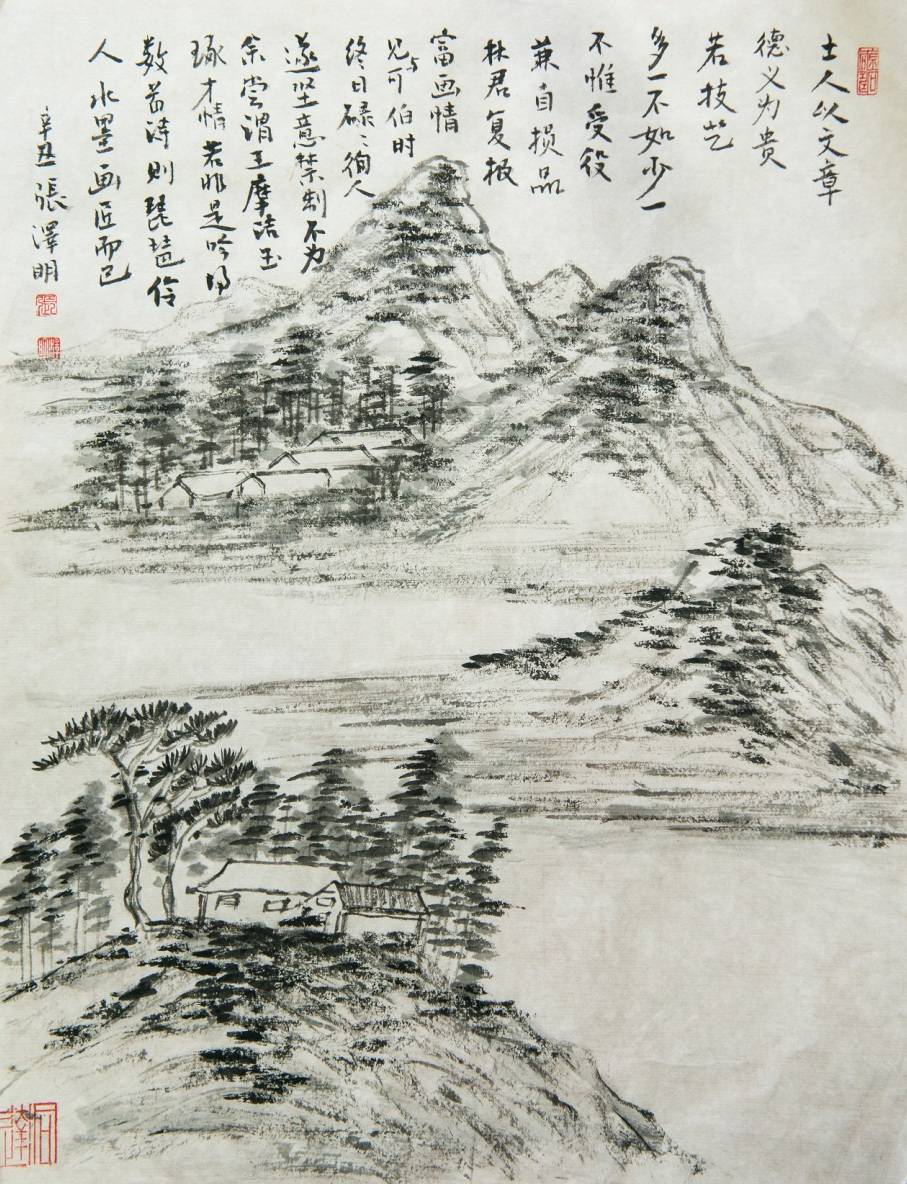 士人以文章
德义为贵
若技艺
多一不如少一
不惟受役
兼自损品
林君复极
富画情
见与可伯时
终日碌々徇人
遂坚意禁制不为
余尝谓王摩诘玉
琢才情若非是吟得
数首诗则琵琶伶
人水墨画匠而已
辛丑 張澤明